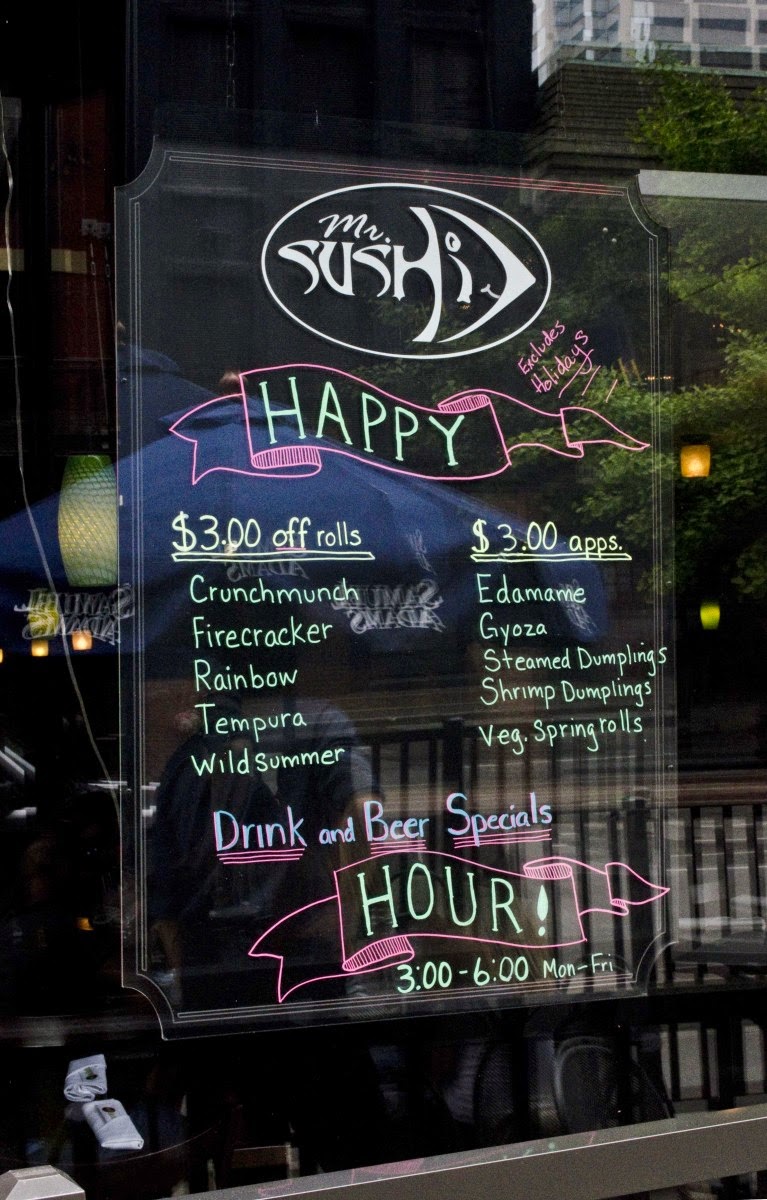 Mr.
SUSHi
Excludes
Holidays
HAPPY
$3.00 off rolls
Crunchmunch
Firecracker
Rainbow
Tempura
Wildsummer
$3.00 apps.
Edamame
Gyoza
Steamed Dumplings
Shrimp Dumplings
Veg. Springrolls
SAMUEL
ADAMS
SAMUEL
ADAMS
ADAMS
Drink and Beer Specials
HOUR!
3:00-6:00 Mon-Fri